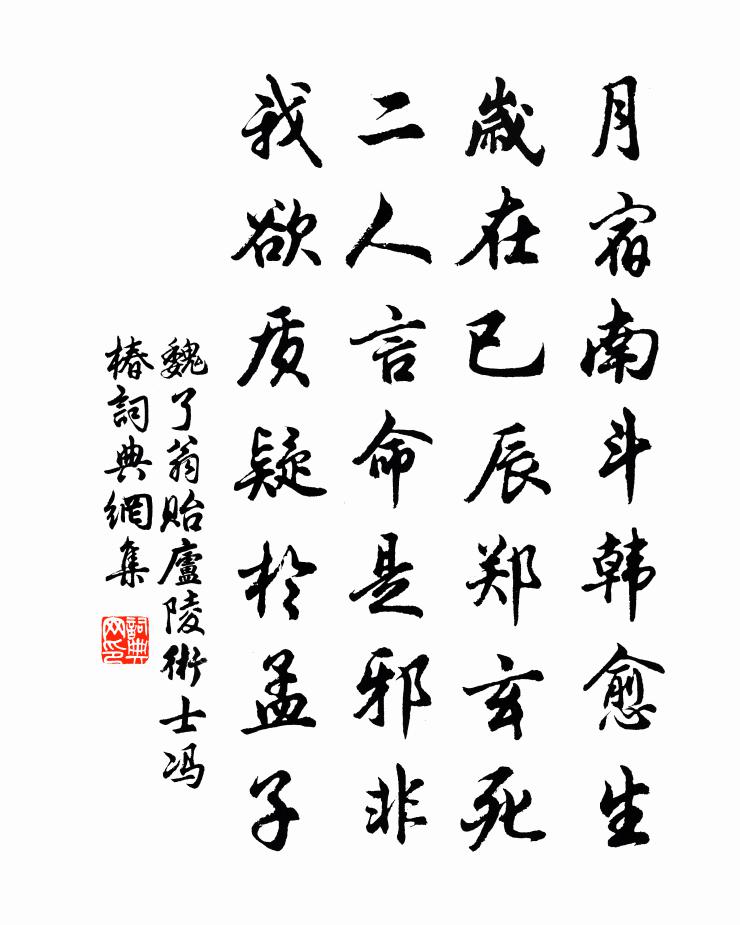 月宿南斗韩愈生
歳在巳辰郑玄死
二人言命是邪非
我欲质疑於孟子
魏了翁貽廬陵術士冯
椿詞典網集
詞典
网印